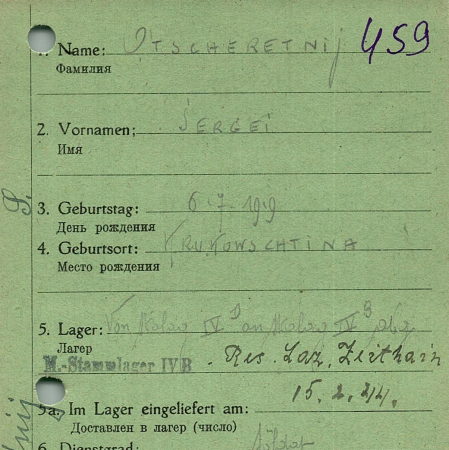 1. Name: OTSCHERETNIJ 459
Фамилия
2. Vornamen: SERGEI
Имя
3. Geburtstag: 6.7.1919
День рождения
4. Geburtsort: KRUKOWSCHTINA
Место рождения
5. Lager: Von Stalag IV D an Stalag IV B
Лагер
M.-Stammlager IV B Res. Laz. Zeithain
15.2.44.
5a. Im Lager eingeliefert am:
Доставлен в лагер (число)
6. Dienstgrad: Soldat